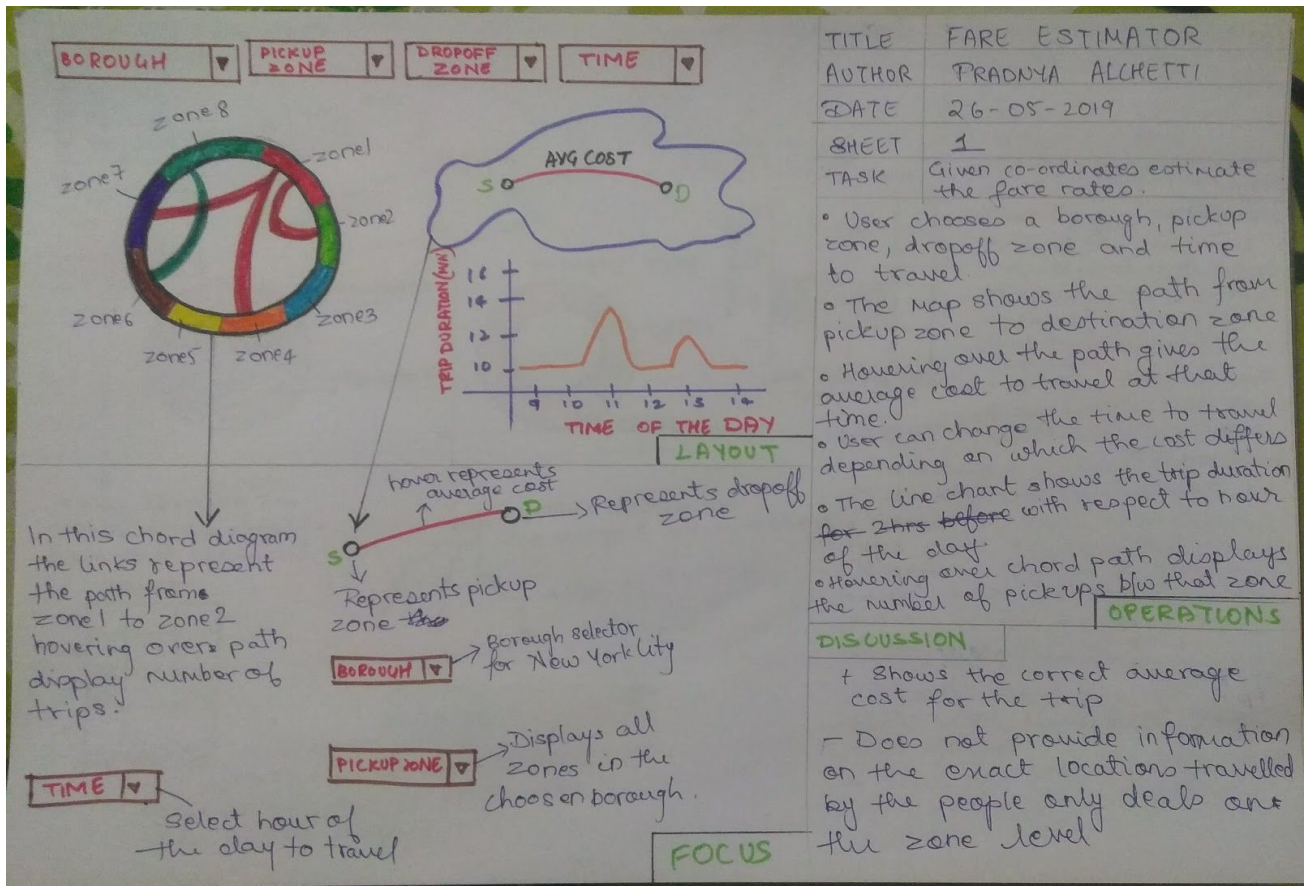 BOROUGH
PICKUP
ZONE
DROPOFF
ZONE
TIME
zone8
zone1
zone7
zone2
zone6
zone3
zone5
zone4
AVG COST
S
D
TRIP DURATION(MIN)
16
14
12
10
9 10 11 12 13 14
TIME OF THE DAY
LAYOUT
In this chord diagram
the links represent
the path from
zone1 to zone2
hovering over path
display number of
trips.
hover represents
average cost
S
D
Represents dropoff
zone
Represents pickup
zone
BOROUGH
Borough selector
for New York City
PICKUP ZONE
Displays all
zones in the
choosen borough.
TIME
Select hour of
the day to travel
FOCUS
TITLE FARE ESTIMATOR
AUTHOR PRADNYA ALCHETTI
DATE 26-05-2019
SHEET 1
TASK Given co-ordinates estimate
the fare rates.
• User chooses a borough, pickup
zone, dropoff zone and time
to travel.
• The Map shows the path from
pickup zone to destination zone
• Hovering over the path gives the
average cost to travel at that
time.
• User can change the time to travel
depending on which the cost differs
• The line chart shows the trip duration
for 2hrs before with respect to hour
of the day.
• Hovering over chord path displays
the number of pickups b/w that zone
OPERATIONS
DISCUSSION
+ Shows the correct average
cost for the trip
- Does not provide information
on the exact locations travelled
by the people only deals on
the zone level